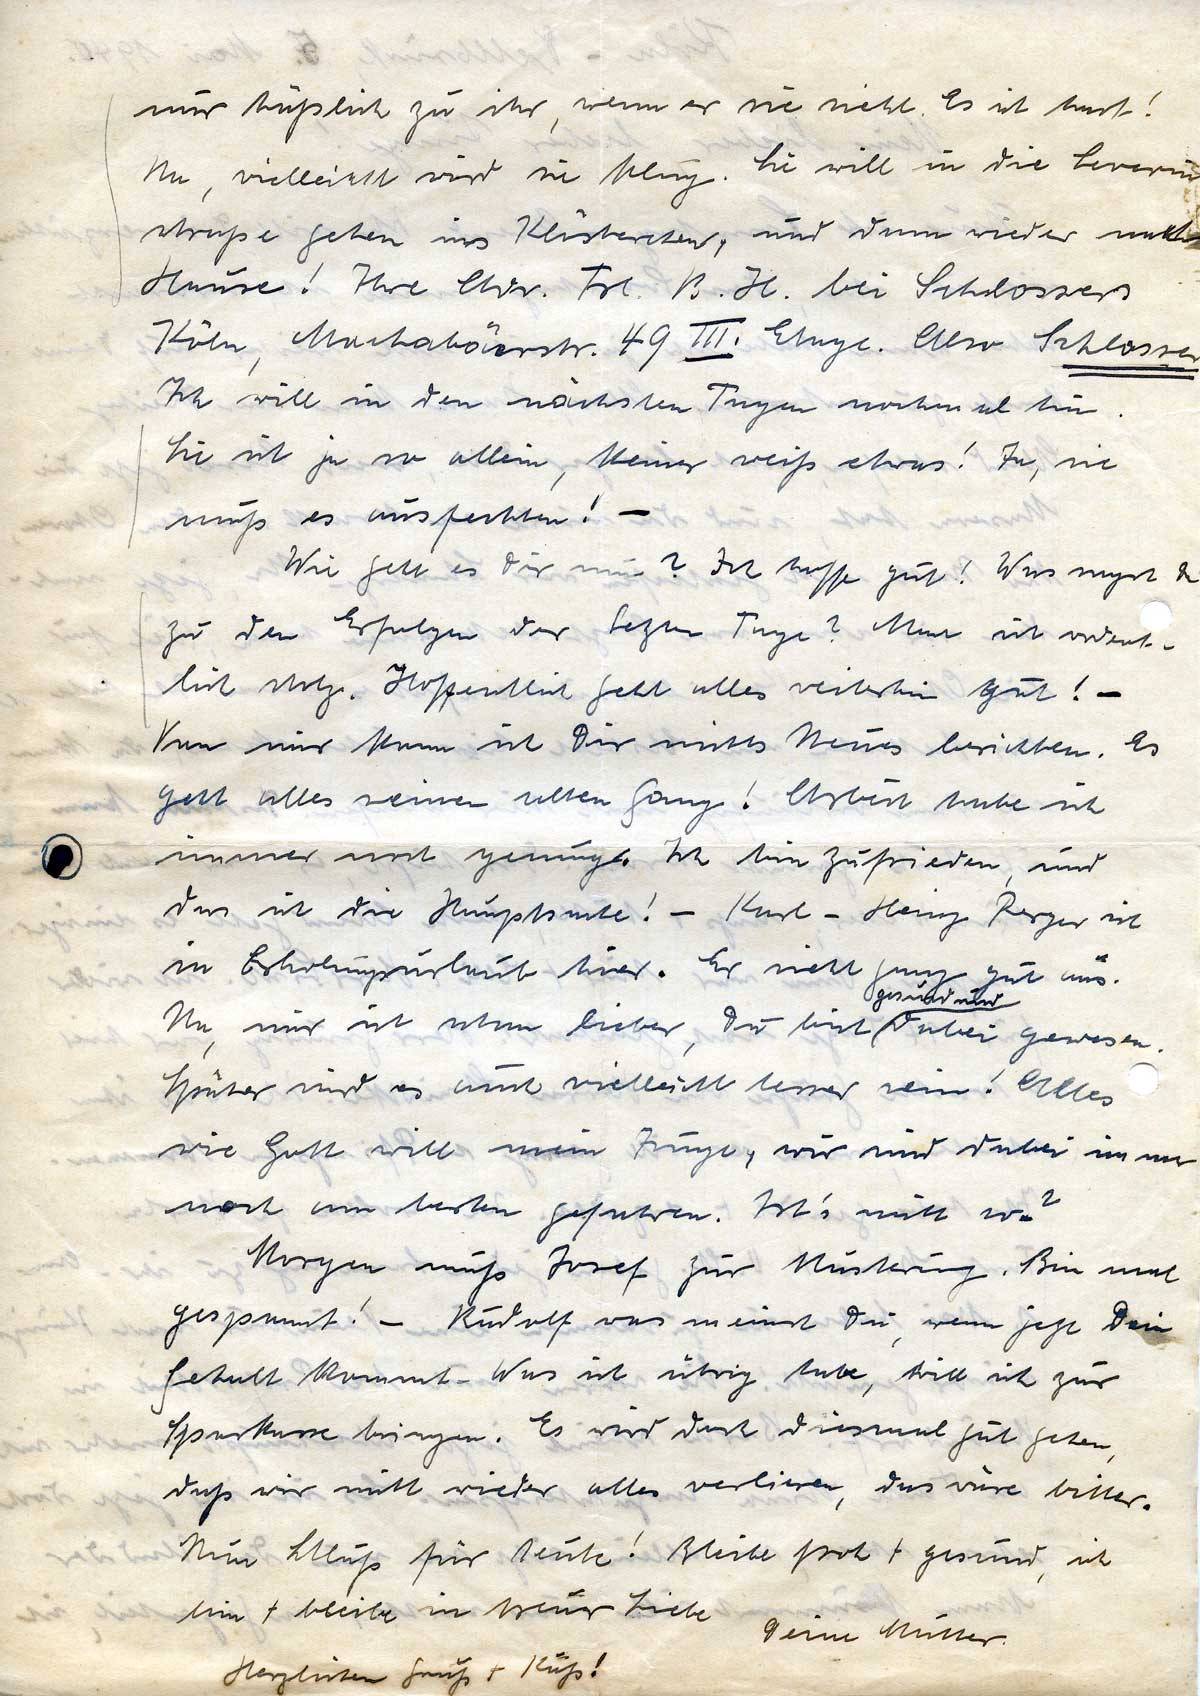 nur häßlich zu ihr, wenn er sie sieht. Es ist hart!
Na, vielleicht wird sie klug. Sie will in die Severin
straße gehen ins Klösterchen, und dann wieder nach
Hause! Ihre Adr. Frl. B. H. bei Schlossers
Köln, Machabäerstr. 49 III. Etage. Also Schlosser
Ich will in den nächsten Tagen nochmal hin.
Sie ist ja so allein, keiner weiß etwas! Ja, sie
muß es ausfechten! —
Wie geht es Dir nun? Ich hoffe gut! Was sagst Du
zu den Erfolgen der letzten Tage? Man ist ordent-
lich stolz. Hoffentlich geht alles weiterhin gut! —
Von mir kann ich Dir nichts Neues berichten. Es
geht alles seinen alten Gang! Arbeit habe ich
immer noch genug. Ich bin zufrieden, und
das ist die Hauptsache! — Karl-Heinz Berger ist
in Erholungsurlaub hier. Er sieht ganz gut aus.
gesund und
Na, mir ist schon lieber, Du bist dabei gewesen.
Später wird es auch vielleicht besser sein! Alles
wie Gott will mein Junge, wir sind dabei immer
noch am besten gefahren. Ist's nicht so?
Morgen muß Josef zur Musterung. Bin mal
gespannt! — Rudolf was meinst Du, wenn jetzt Dein
Gehalt kommt. Was ich übrig habe, will ich zur
Sparkasse bringen. Es wird doch diesmal gut gehen,
daß wir nicht wieder alles verlieren, das wäre bitter.
Nun Schluß für heute! Bleibe froh + gesund, ich
bin + bleibe in treuer Liebe
Deine Mutter.
Herzlichen Gruß + Kuß!